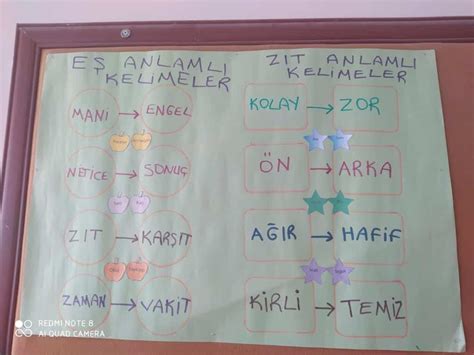 EŞ ANLAMLI
KELİMELER
MANİ → ENGEL
NETİCE → SONUÇ
ZIT → KARŞIT
ZAMAN → VAKİT
ZIT ANLAMLI
KELİMELER
KOLAY → ZOR
ÖN → ARKA
AĞIR → HAFİF
KİRLİ → TEMİZ
REDMI NOTE 8
AI QUAD CAMERA